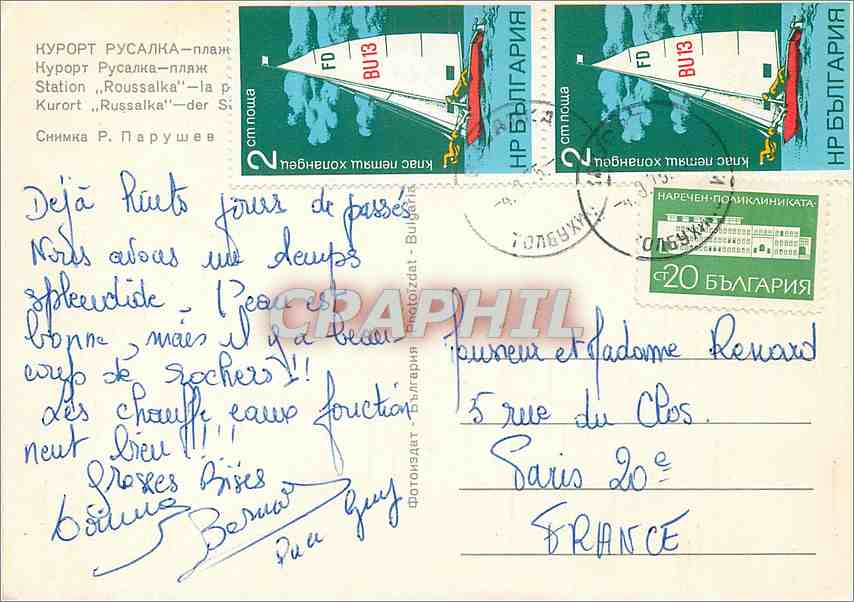 КУРОРТ РУСАЛКА—плаж
Курорт Русалка—пляж
Station „Roussalka"—la p
Kurort „Russalka"—der S
Снимка Р. Парушев
2 ст поща
клас летящ холандец
НР БЪЛГАРИЯ
FD
BU13
2 ст поща
клас летящ холандец
НР БЪЛГАРИЯ
FD
BU13
НАРЕЧЕН-ПОЛИКЛИНИКАТА
СТ 20 БЪЛГАРИЯ
ТОЛБУХИН
ТОЛБУХИН
Déjà huits jours de passés
Nous avons un temps
splendide, l'eau est
bonne, mais il y a beau-
coup de rochers !!!
Les chauffe eaux fonction
nent bien !!!!
Grosses Bises
Guy
Фотоиздат - България Photoizdat - Bulgaria
Monsieur et Madame Renard
5 rue du Clos.
Paris 20e
FRANCE
CRAPHIL